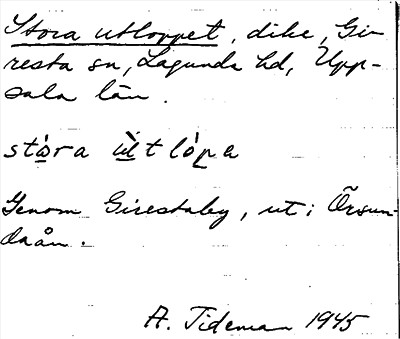 Stora utloppet, dike, Gi-
resta sn, Lagunda hd, Upp-
sala län.
stòra ùtlópe
Genom Girestaby, ut i Örsun-
daån.
A. Tideman 1945